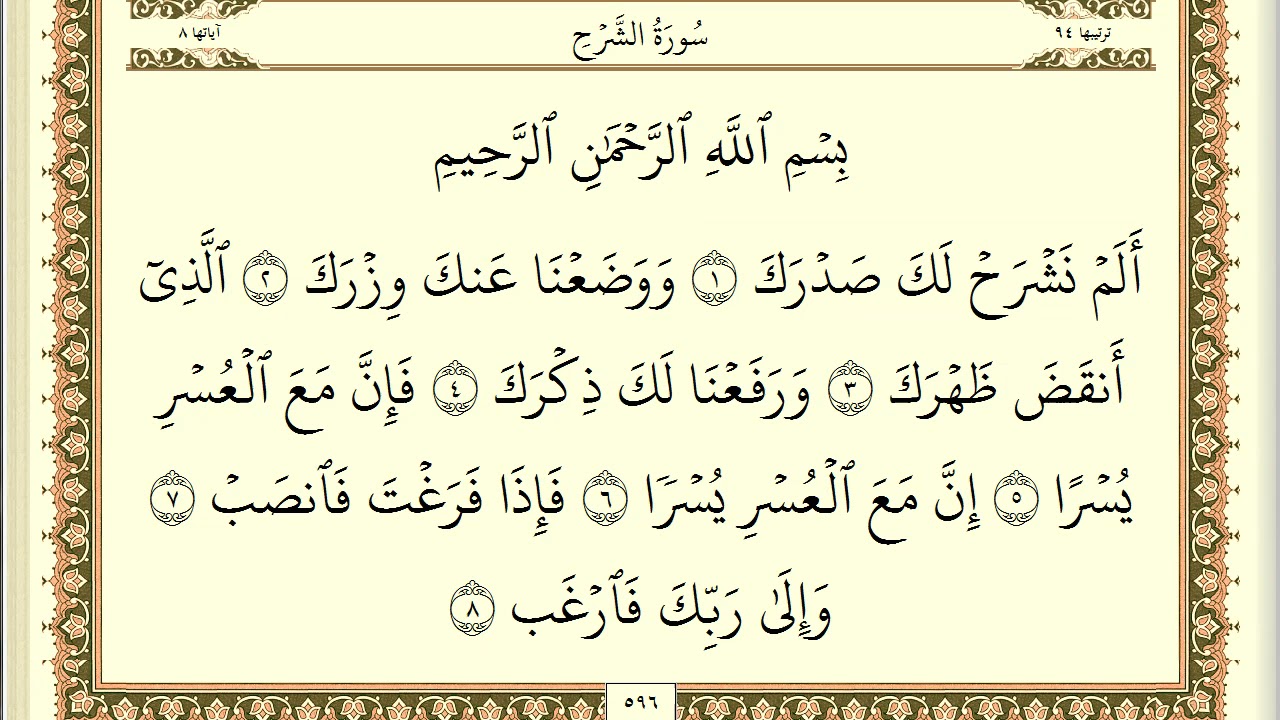 ترتيبها ٩٤ سُورَةُ الشَّرۡحِ آياتها ٨
بِسۡمِ ٱللَّهِ ٱلرَّحۡمَٰنِ ٱلرَّحِيمِ
أَلَمۡ نَشۡرَحۡ لَكَ صَدۡرَكَ ١ وَوَضَعۡنَا عَنكَ وِزۡرَكَ ٢ ٱلَّذِيٓ
أَنقَضَ ظَهۡرَكَ ٣ وَرَفَعۡنَا لَكَ ذِكۡرَكَ ٤ فَإِنَّ مَعَ ٱلۡعُسۡرِ
يُسۡرًا ٥ إِنَّ مَعَ ٱلۡعُسۡرِ يُسۡرٗا ٦ فَإِذَا فَرَغۡتَ فَٱنصَبۡ ٧
وَإِلَىٰ رَبِّكَ فَٱرۡغَب ٨
٥٩٦